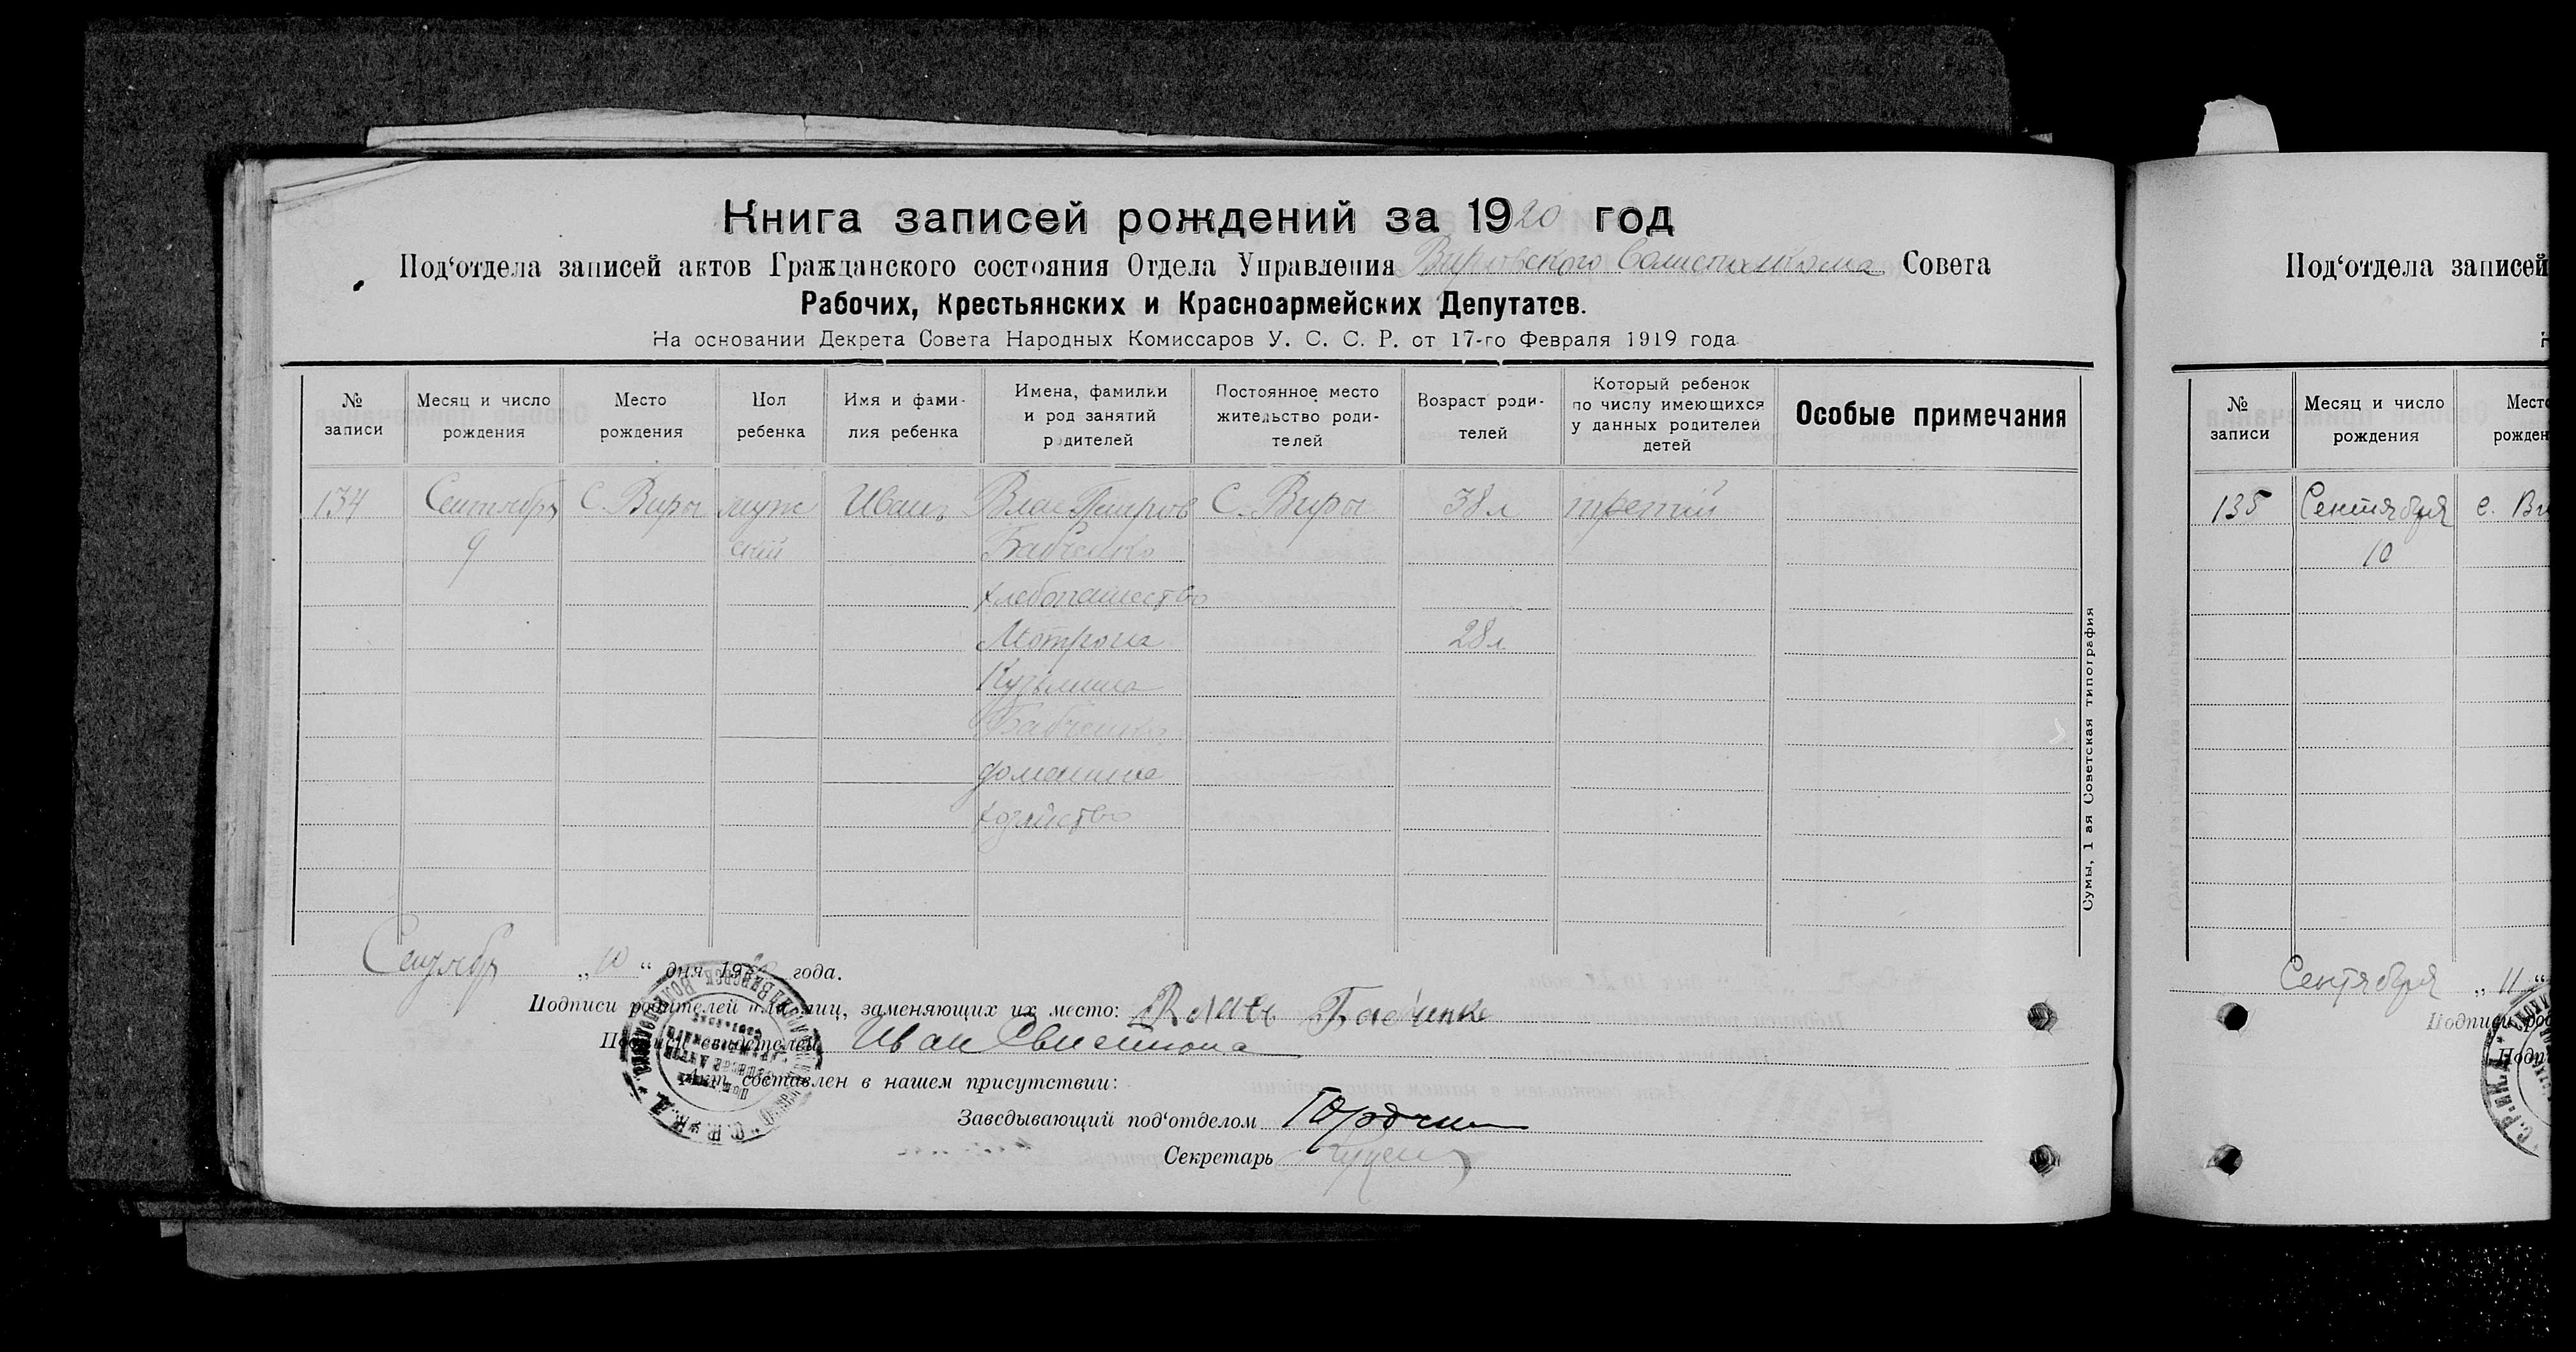 Книга записей рождений за 1920 год
Под‘отдела записей актов Гражданского состояния Отдела Управления Вировского Волисполкома Совета
Рабочих, Крестьянских и Красноармейских Депутатов.
На основании Декрета Совета Народных Комиссаров У. С. С. Р. от 17-го Февраля 1919 года
№ записи
Месяц и число рождения
Место рождения
Пол ребенка
Имя и фами- лия ребенка
Имена, фамилии и род занятий родителей
Постоянное место жительство роди- телей
Возраст роди- телей
Который ребенок по числу имеющихся у данных родителей детей
Особые примечания
134 Сентябрь С. Виры муж Иван Влас Петров С. Виры 38 л третий
9 ский Бабченко
хлебопашество
Мотрона 28 л
Кузьмина
Бабченко
домашние
хозяйство
Сентябрь „10“ дня 1920 года.
Подписи родителей или лиц, заменяющих их место: Влась Бабченко
Подписи свидетелей Иван
Акт составлен в нашем присутствии:
Заведывающий под‘отделом
Секретарь
Сумы, 1 ая Советская типография
Под‘отдела записей
№ записи
Месяц и число рождения
135 Сентября с. Ви
10
Сентября „11“